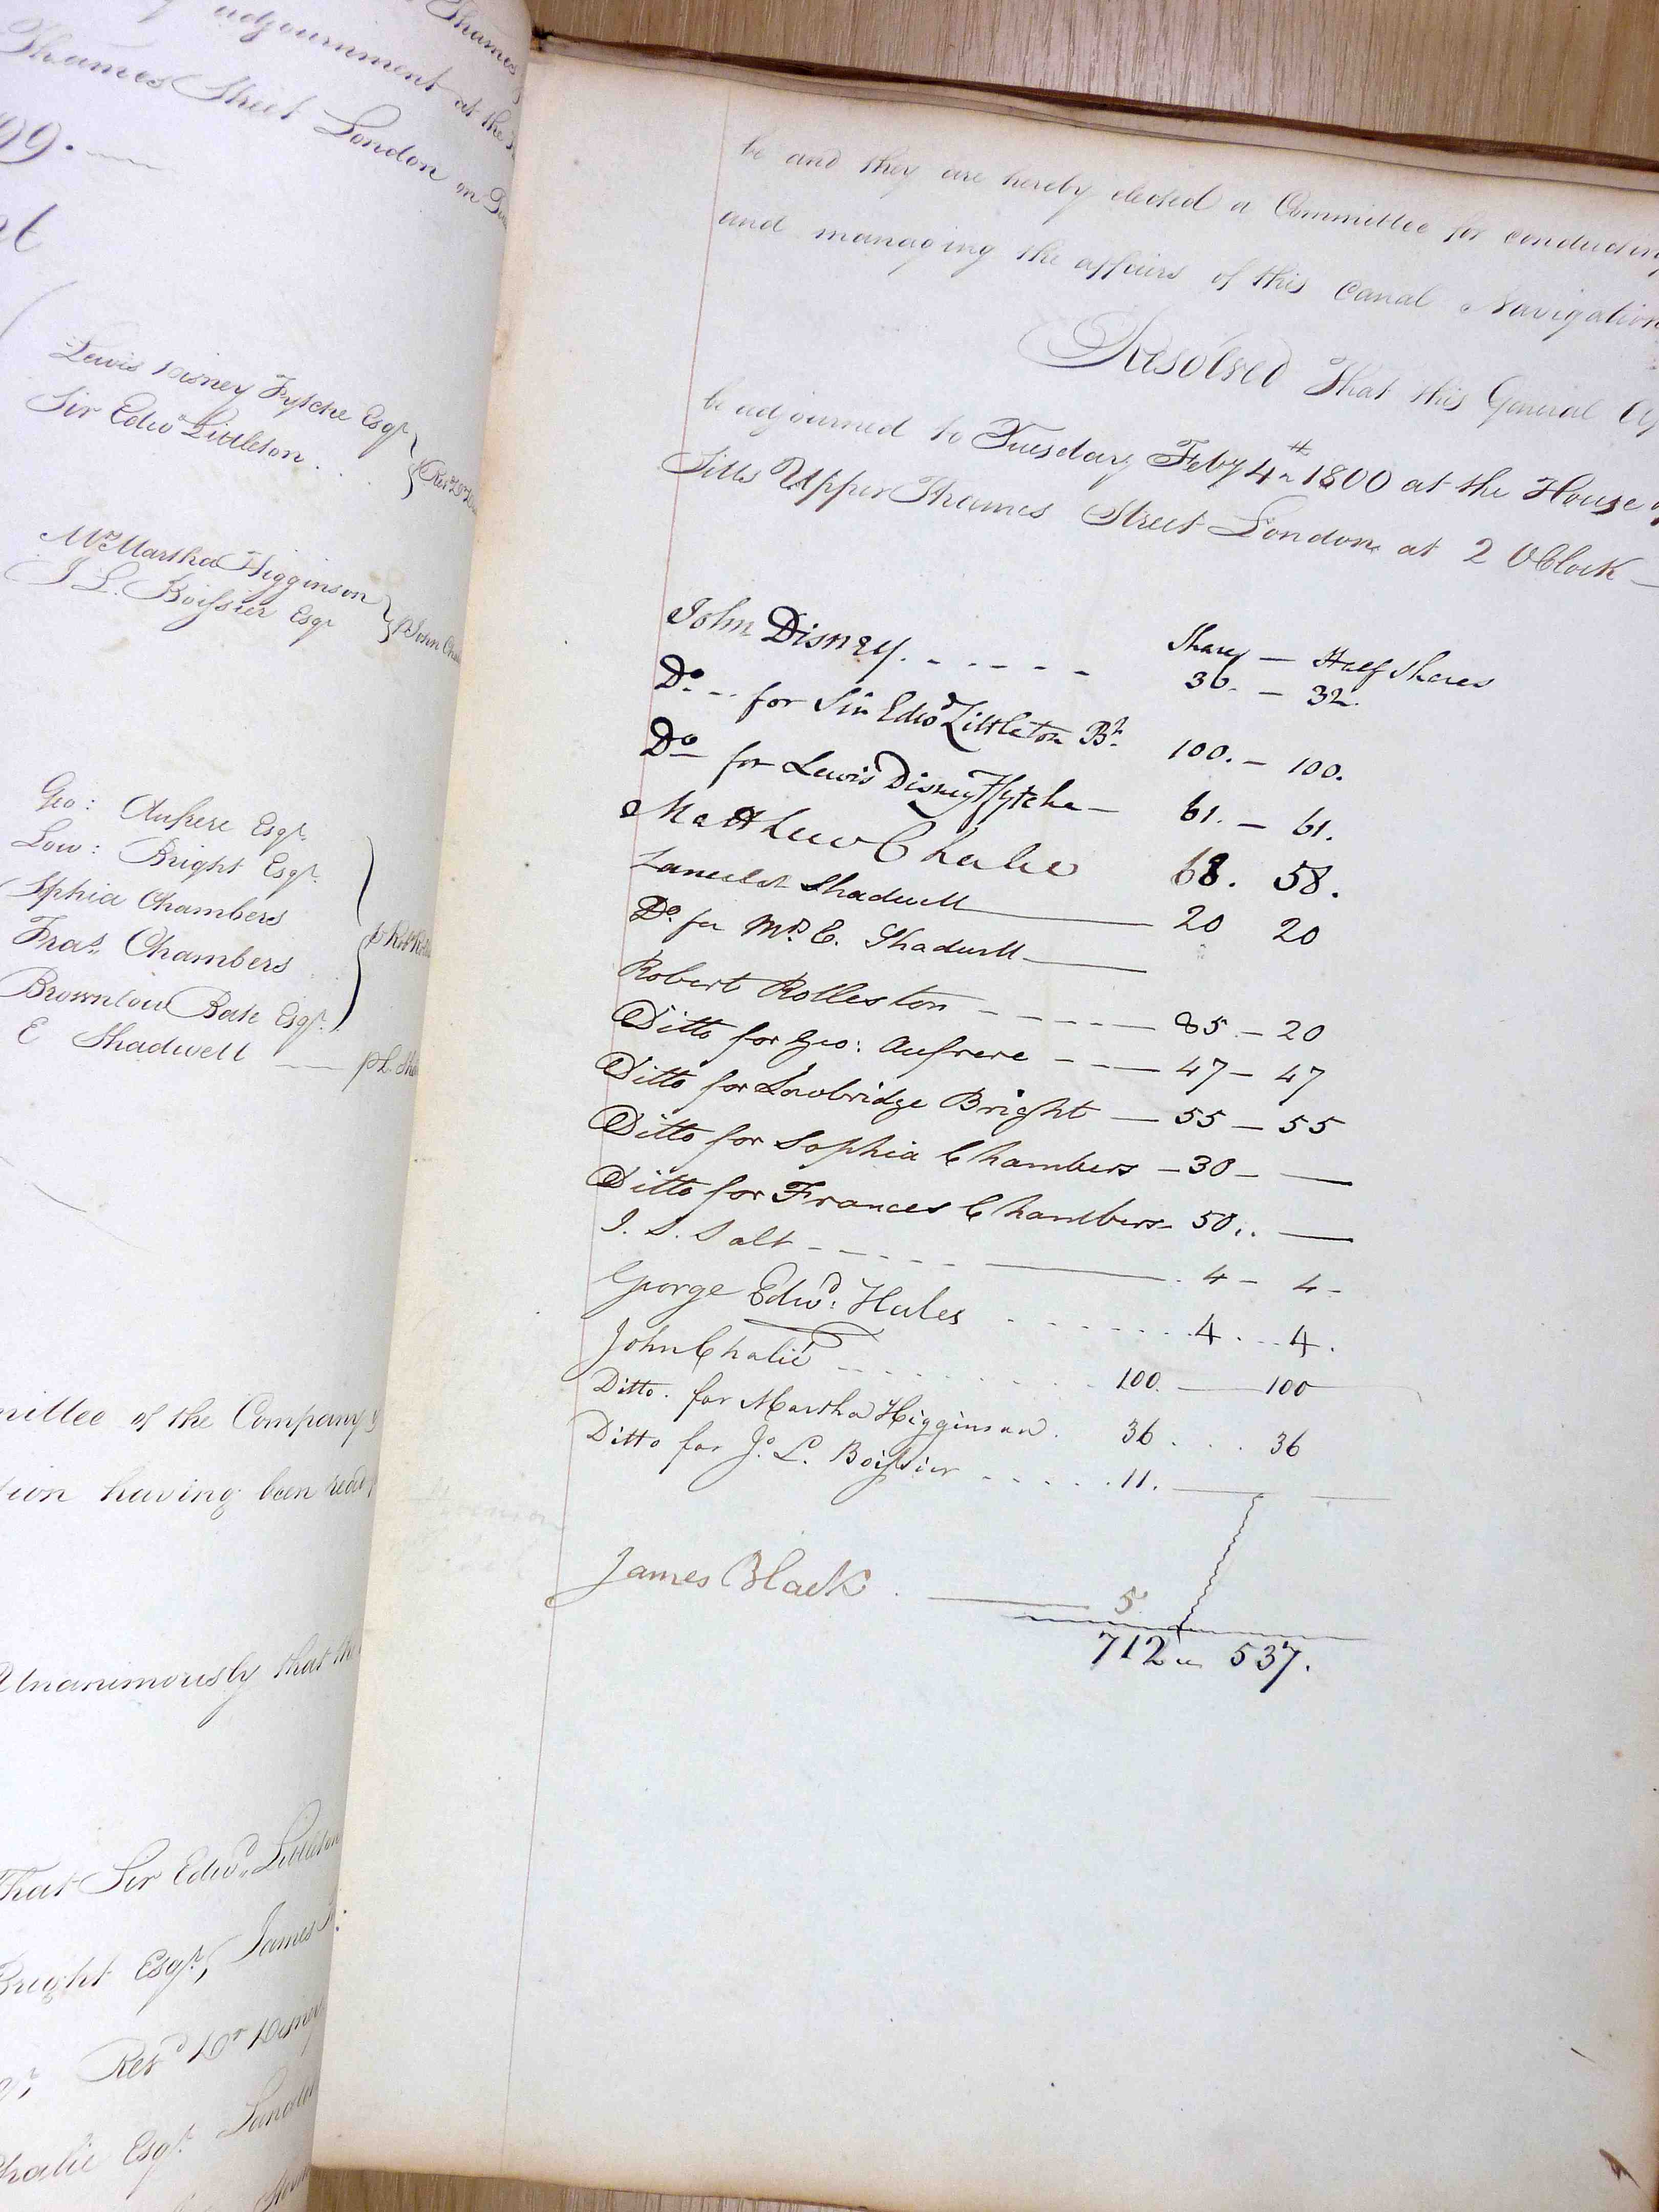 Thames
adjournment at the
Thames Street London on
99.
Lewis Disney Fytche Esqr.
Sir Edwd. Littleton
Mrs. Martha Higginson
J. L. Boissier Esqr
Geo: Aufrere Esqr.
Low: Bright Esqr.
Sphia Chambers
Fras. Chambers
Brownlow Bate Esqr.
E Shadwell
mittee of the Company
tion having been read
Unanimously that the
That Sir Edwd. Littleton
Bright Esqr., James
Revd Dr Disney
halie Esqr.
be and they are hereby elected a Committee for conducting
and managing the affairs of this Canal Navigation
Resolved That this General
be adjourned to Tuesday Feby 4th 1800 at the House
Sills Upper Thames Street London at 2 OClock
Shares — Half Shares
John Disney. - - - - - 36. — 32.
Do. -- for Sir Edwd Littleton Bt. 100. — 100.
Do for Lewis Disney Ffytche — 61. — 61.
Matthew Chalie 68. 58.
Lancelot Shadwell 20 20
Do. for Mrs. E. Shadwell
Robert Rolleston - - - - 85. — 20
Ditto for Geo: Aufrere - - - 47 — 47
Ditto for Lowbridge Bright — 55 — 55
Ditto for Sophia Chambers — 30 — —
Ditto for Frances Chambers - 50.. —
J. S. Salt - - - - 4 — 4 -
George Edwd: Hales 4 . . . 4.
John Chalié 100. — 100
Ditto. for Martha Higginson. 36 . . . 36
Ditto for Jo. L. Boissier - - - - 11. —
James Black. 5
712 537.